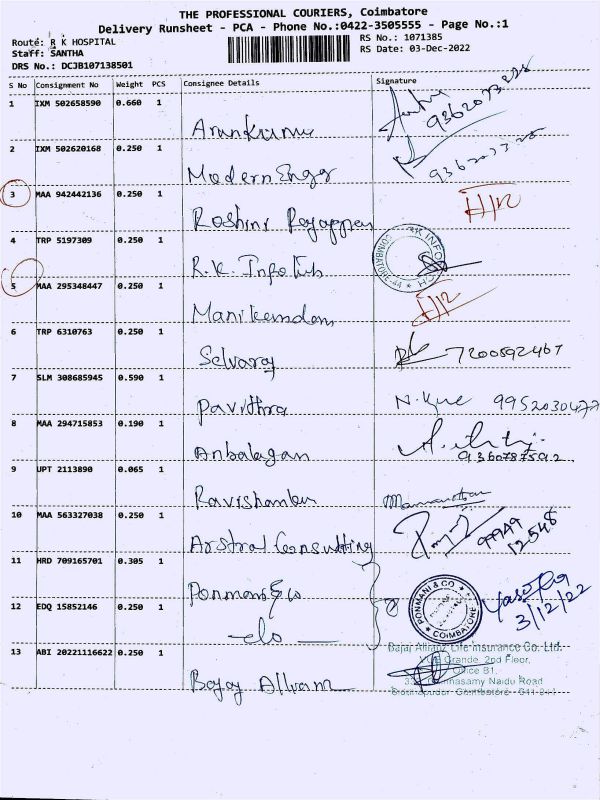 THE PROFESSIONAL COURIERS, Coimbatore
Delivery Runsheet - PCA - Phone No.:0422-3505555 - Page No.:1
Route: R K HOSPITAL
Staff: SANTHA
DRS No.: DCJB107138501
RS No.: 1071385
RS Date: 03-Dec-2022
S No Consignment No Weight PCS Consignee Details Signature
1 IXM 502658590 0.660 1
Arunkumar
2 IXM 502620168 0.250 1
Modern Engg
3 MAA 942442136 0.250 1
Roshini Rajappan
4 TRP 5197309 0.250 1
R.K. Info
COIMBATORE-44
5 MAA 295348447 0.250 1
Manikandan
6 TRP 6310763 0.250 1
Selvaraj 7200592467
7 SLM 308685945 0.590 1
Pavithra 9952030477
8 MAA 294715853 0.190 1
Anbalagan 9360787592
9 UPT 2113890 0.065 1
10 MAA 563327038 0.250 1
Arstral Consulting
11 HRD 709165701 0.305 1
Ponmani & co
PONMANI & CO
COIMBATORE
3/12/22
12 EDQ 15852146 0.250 1
13 ABI 20221116622 0.250 1
Bajaj
Bajaj Allianz Life Insurance Co. Ltd.
Grande, 2nd Floor,
Office B1,
Naidu Road